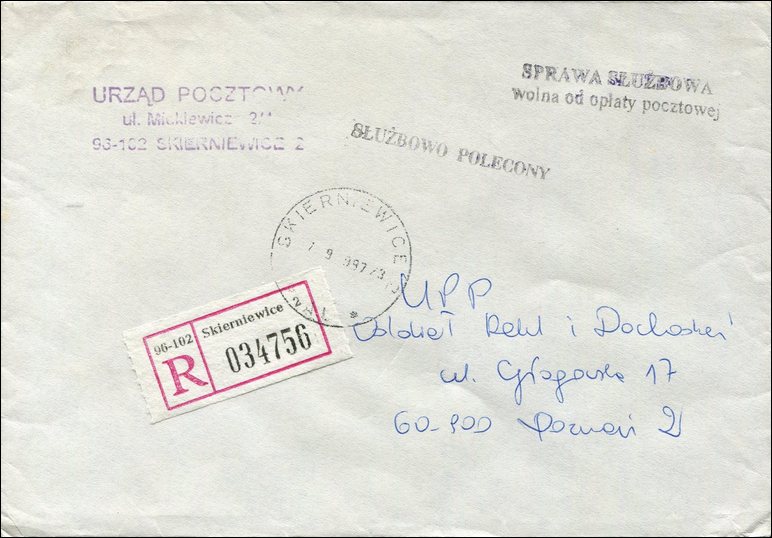 URZĄD POCZTOWY
ul. Mickiewicz
96-102 SKIERNIEWICE 2
SPRAWA SŁUŻBOWA
wolna od opłaty pocztowej
SŁUŻBOWO POLECONY
SKIERNIEWICE
96-102
Skierniewice 2
R
034756
UPP
Oddział Rekl i Dochodzeń
ul. Głogowska 17
60-900 Poznań 2